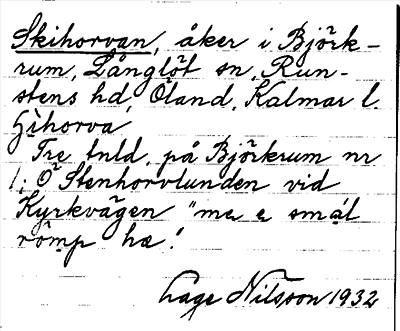 Skihorvan, åker i Björk-
rum, Långlöt sn, Run-
stens hd, Öland, Kalmar l.
ʃihorva
Tre tnld, på Björkrum nr
1; Ö Stenhorvlunden vid
Kyrkvägen "me e smál
römp hæ!
Lage Nilsson 1932